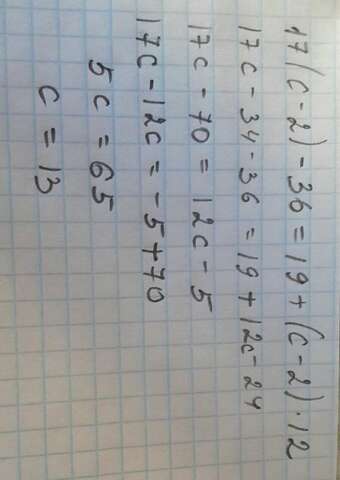 17(c-2)-36=19+(c-2)·12
17c-34-36=19+12c-24
17c-70=12c-5
17c-12c=-5+70
5c=65
c=13